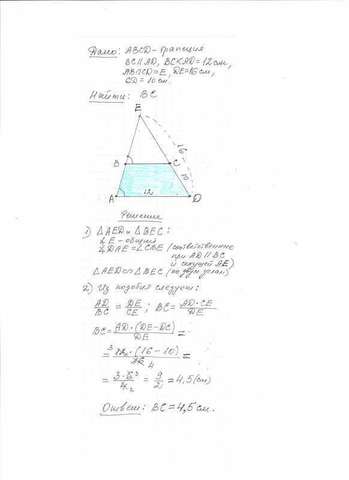 Дано: ABCD - трапеция
BC ∥ AD, BC < AD = 12 см,
AB ∩ CD = E, DE = 16 см,
CD = 10 см.
Найти: BC
E
16
B C
10
A 12 D
Решение
1) △AED и △BEC:
∠E - общий
∠DAE = ∠CBE (соответственные
при AD ∥ BC
и секущей AE)
△AED ∞ △BEC (по двум углам)
2) Из подобия следует:
AD/BC = DE/CE ; BC = AD·CE/DE
BC = AD·(DE-DC)/DE =
= 12·(16-10)/16 =
= 3·6/4 = 9/2 = 4,5 (см)
Ответ: BC = 4,5 см.